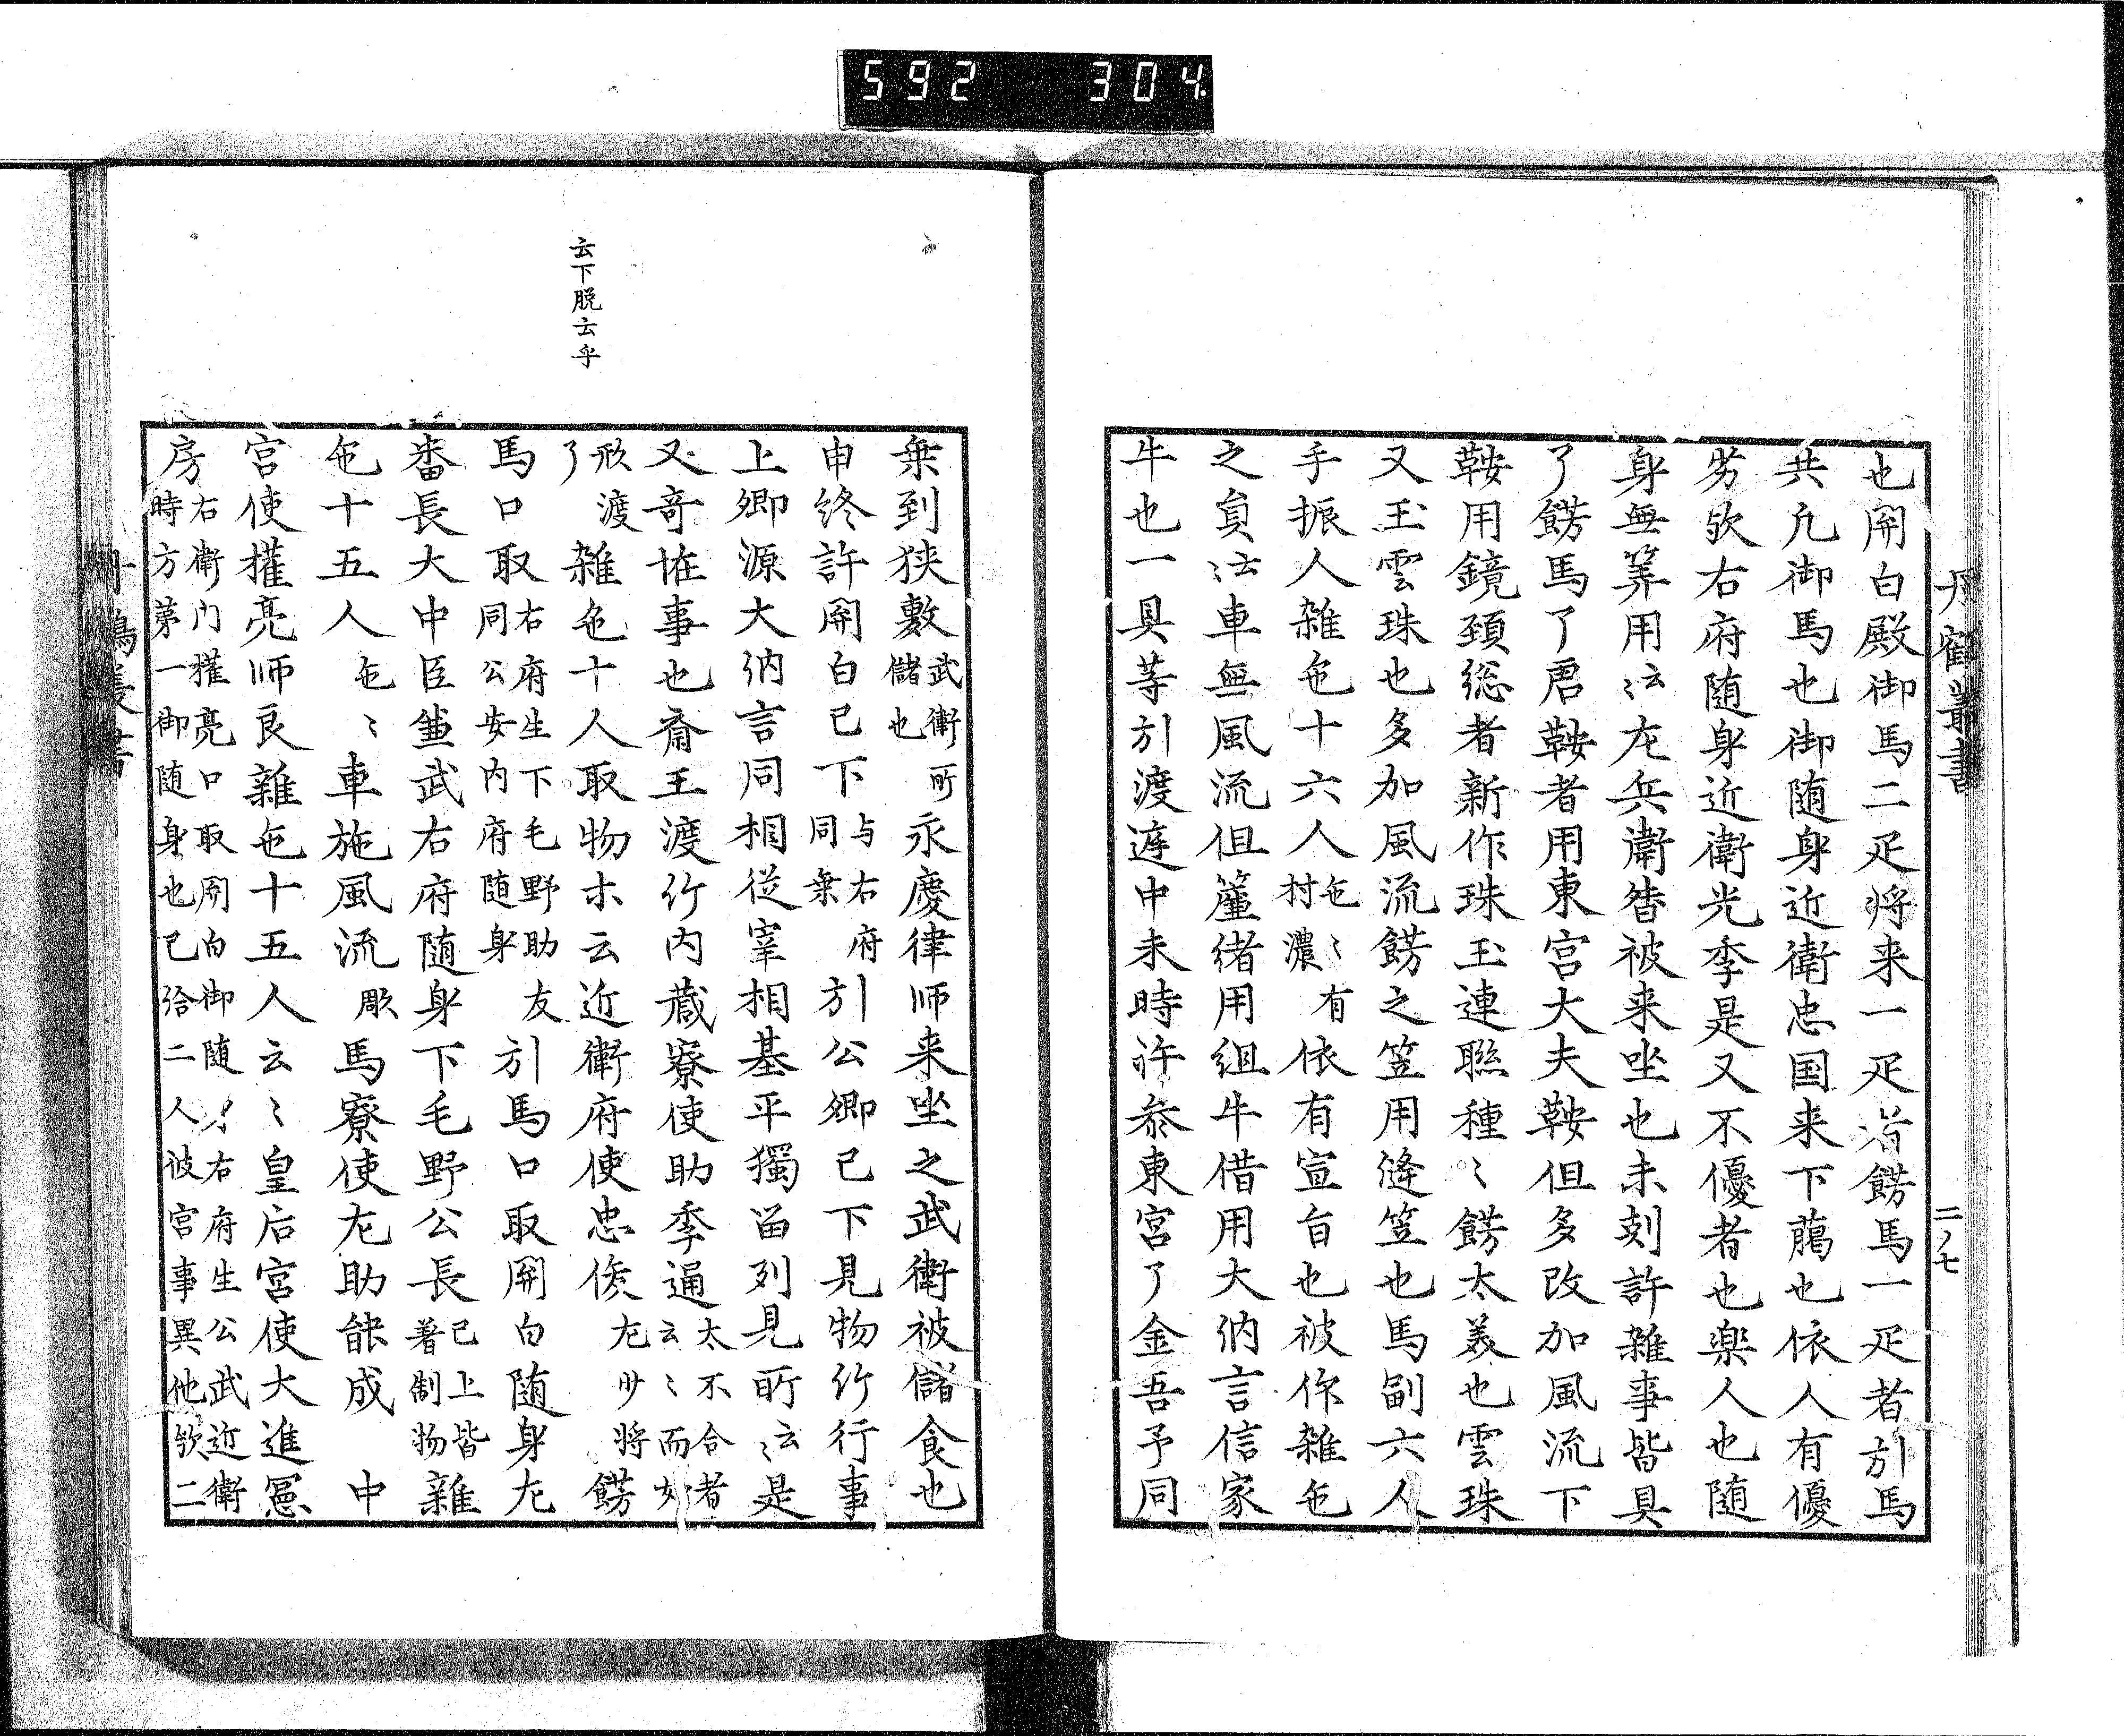 592 304
丹鶴叢書
二ノ七
也開白殿御馬二疋将来一疋者餝馬一疋者引馬
共凢御馬也御随身近衛忠国来下﨟也依人有優
労欤右府随身近衛光季是又不優者也楽人也随
身無筭用云〻左兵衛督被来坐也未剋許雑事皆具
了餝馬了君鞍者用東宮大夫鞍但多改加風流下
鞍用鏡頚総者新作珠玉連聯種〻餝太美也雲珠
又玉雲珠也多加風流餝之笠用縫笠也馬副六人
手振人雑色十六人色〻有村濃依有宣旨也被作雑色
之員云〻車無風流但簾緒用組牛借用大納言信家
牛也一具等引渡途中未時許参東宮了金吾予同
云下脱云乎
乗到狭敷武衛所儲也永慶律师来坐之武衛被儲食也
申終許開白已下与右府同乗引公卿已下見物竹行事
上卿源大納言同相従宰相基平獨畄列見所云〻是
又奇恠事也斎王渡竹内蔵寮使助季通太不合者云〻而如
形渡了雑色十人取物木云近衛府使忠俊左少将餝
馬口取右府生下毛野助友同公安内府随身引馬口取開白随身左
番長大中臣兼武右府随身下毛野公長已上皆著制物雑
色十五人色〻車施風流彫馬寮使左助能成 中
宮使権亮师良雑色十五人云〻皇后宮使大進冨
房右衛门権亮口取開白御随身右府生公武近衛二時方第一御随身也已給二人彼宮事異他欤二